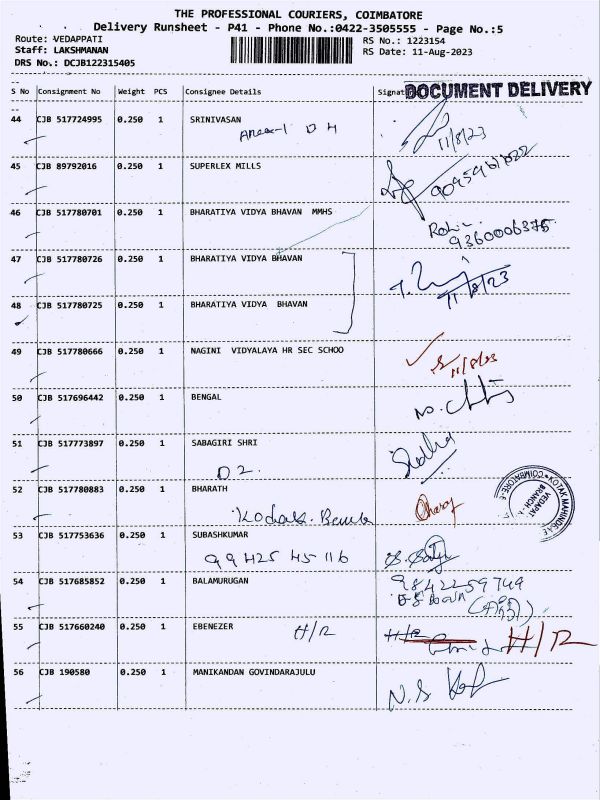 THE PROFESSIONAL COURIERS, COIMBATORE
Delivery Runsheet - P41 - Phone No.:0422-3505555 - Page No.:5
Route: VEDAPPATI
RS No.: 1223154
Staff: LAKSHMANAN
RS Date: 11-Aug-2023
DRS No.: DCJB122315405
S No Consignment No Weight PCS Consignee Details Signat
DOCUMENT DELIVERY
44 CJB 517724995 0.250 1 SRINIVASAN
11/8/23
45 CJB 89792016 0.250 1 SUPERLEX MILLS
46 CJB 517780701 0.250 1 BHARATIYA VIDYA BHAVAN MMHS
9360006375
47 CJB 517780726 0.250 1 BHARATIYA VIDYA BHAVAN
11/8/23
48 CJB 517780725 0.250 1 BHARATIYA VIDYA BHAVAN
49 CJB 517780666 0.250 1 NAGINI VIDYALAYA HR SEC SCHOO
11/8/23
50 CJB 517696442 0.250 1 BENGAL
51 CJB 517773897 0.250 1 SABAGIRI SHRI
D2.
52 CJB 517780883 0.250 1 BHARATH
53 CJB 517753636 0.250 1 SUBASHKUMAR
99425 45116
54 CJB 517685852 0.250 1 BALAMURUGAN
9842259749
55 CJB 517660240 0.250 1 EBENEZER H/R H/R H/R
56 CJB 190580 0.250 1 MANIKANDAN GOVINDARAJULU